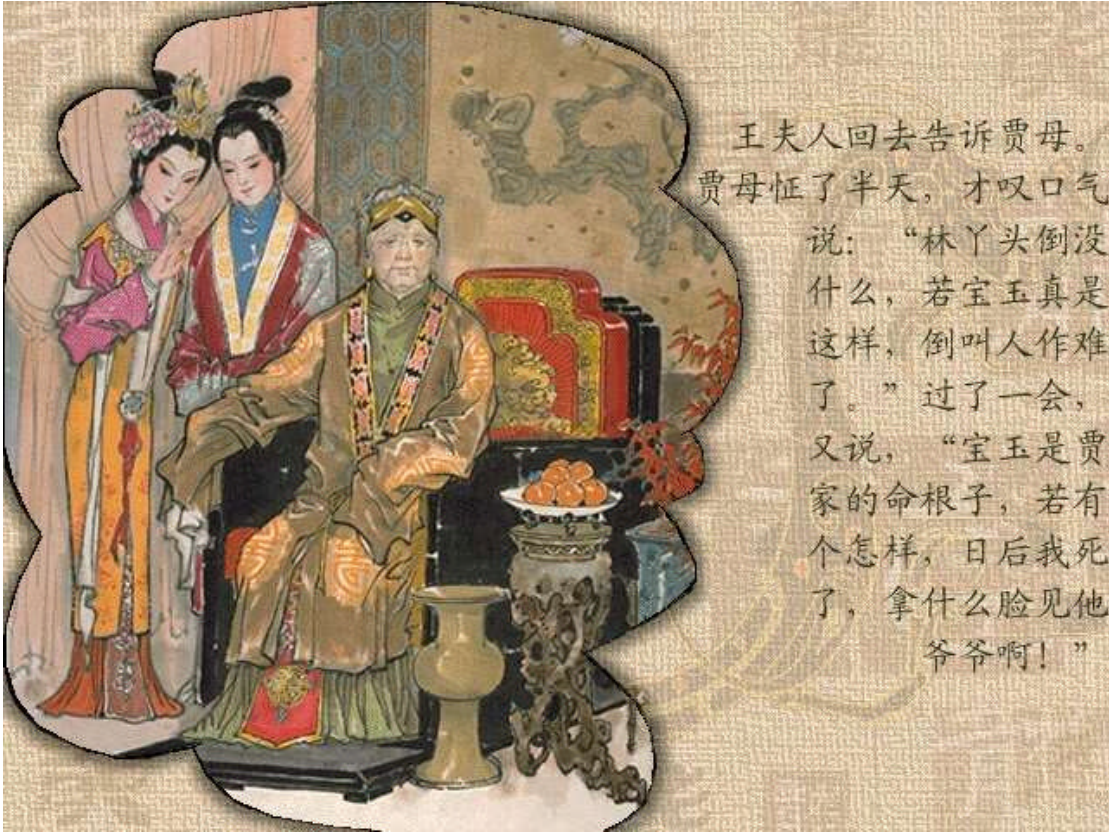 王夫人回去告诉贾母。
贾母怔了半天，才叹口气
说：“林丫头倒没
什么，若宝玉真是
这样，倒叫人作难
了。”过了一会，
又说，“宝玉是贾
家的命根子，若有
个怎样，日后我死
了，拿什么脸见他
爷爷啊！”